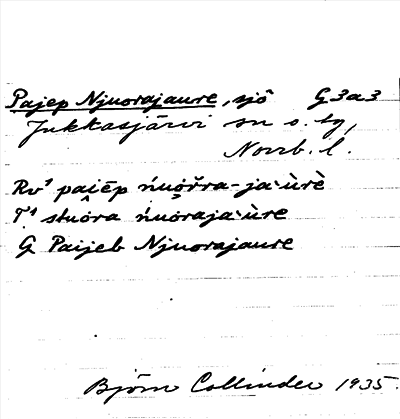 Pajep Njuorajaure, sjö G3a3
Jukkasjärvi sn o. tg,
Norrb. l.
Rv¹ pai̯ēp ńuo̭řra-ja·ùrè
T¹ stuôra ńuo̭raja·ùre
G Paijeb Njuorajaure
Björn Collinder 1935.